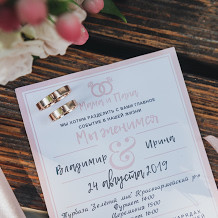 МЫ ХОТИМ РАЗДЕЛИТЬ С ВАМИ ГЛАВНОЕ
СОБЫТИЕ В НАШЕЙ ЖИЗНИ
Мы женимся
Владимир
&
Ирина
24 августа 2019
Турбаза Зелёный мыс
Фуршет 14:00
Церемония 15:00